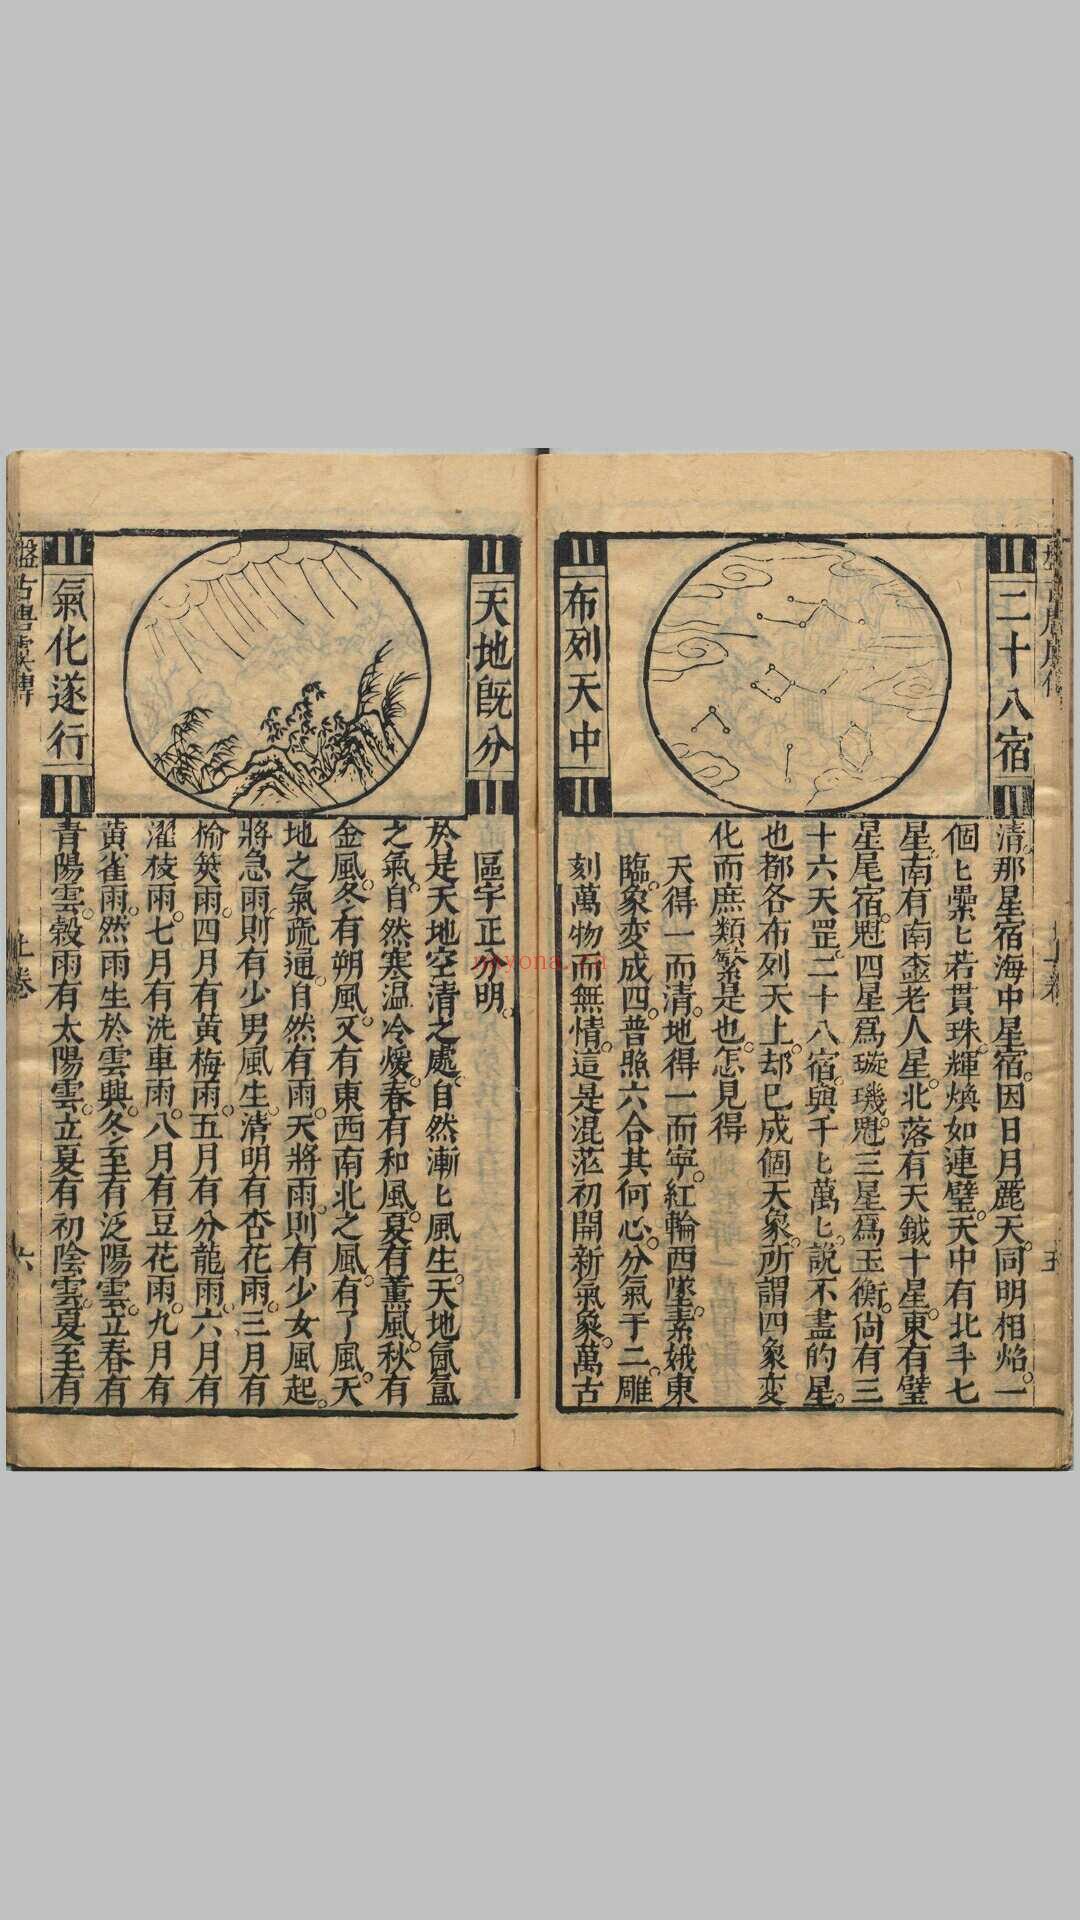 二十八宿
布列天中
清。那星宿海中星宿。因日月麗天。同明相焰。一
個匕纍匕若貫珠。輝煥如連璧。天中有北斗七
星。南有南
老人星。北落有天鉞十星。東有壁
星尾宿。魁四星爲璇璣。魁三星爲玉衡。尙有三
十六天罡。二十八宿。與千匕萬匕。說不盡的星。
也都各布列天上。却已成個天象。所謂四象变
化而庶類繁是也。怎見得
天得一而清。地得一而寧。紅輪西墜。素娥東
臨。象变成四。普照六合其何心。分氣于二。雕
刻萬物而無情。這是混茫初開新氣象。萬古
五
天地旣分
氣化遂行
區宇正分明。
於是天地空清之處。自然漸匕風生。天地氤氳
之氣。自然寒温冷煖。春有和風。夏有薫風。秋有
金風。冬有朔風。又有東西南北之風。有了風。天
地之氣疏通。自然有雨。天將雨。則有少女風起。
將急雨。則有少男風生。清明有杏花雨。三月有
榆筴雨。四月有黄梅雨。五月有分龍雨。六月有
濯枝雨。七月有洗車雨。八月有豆花雨。九月有
黄雀雨。然雨生於雲興。冬至有泛陽雲。立春有
青陽雲。穀雨有太陽雲。立夏有初陰雲。夏至有
盤古唐虞傳
上卷
六